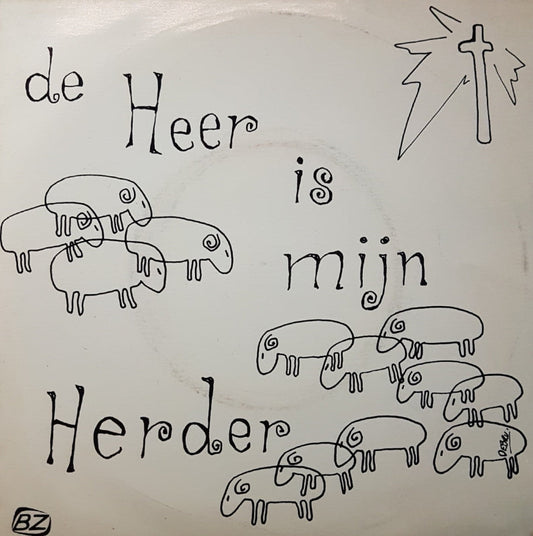 de
Heer
is
mijn
Herder
BZ